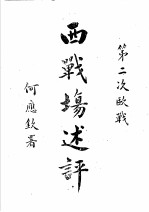 第二次歐戰
西戰場述評
何應欽署